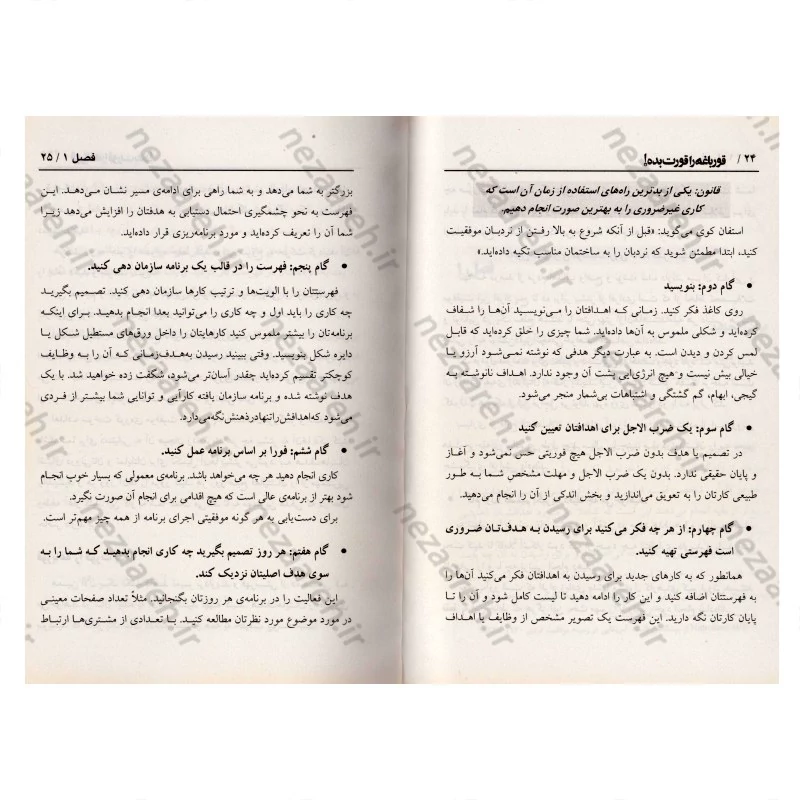 ۲۴ / قورباغه را قورت بده!
قانون: یکی از بدترین راه‌های استفاده از زمان آن است که
کاری غیرضروری را به بهترین صورت انجام دهیم.
استفان کوی می‌گوید: «قبل از آنکه شروع به بالا رفتن از نردبان موفقیت
کنید، ابتدا مطمئن شوید که نردبان را به ساختمان مناسب تکیه داده‌اید.»
• گام دوم: بنویسید
روی کاغذ فکر کنید. زمانی که اهدافتان را می‌نویسید آن‌ها را شفاف
کرده‌اید و شکلی ملموس به آن‌ها داده‌اید. شما چیزی را خلق کرده‌اید که قابل
لمس کردن و دیدن است. به عبارت دیگر هدفی که نوشته نمی‌شود آرزو یا
خیالی بیش نیست و هیچ انرژی‌ایی پشت آن وجود ندارد. اهداف نانوشته به
گیجی، ابهام، گم گشتگی و اشتباهات بی‌شمار منجر می‌شود.
• گام سوم: یک ضرب الاجل برای اهدافتان تعیین کنید
در تصمیم یا هدف بدون ضرب الاجل هیچ فوریتی حس نمی‌شود و آغاز
و پایان حقیقی ندارد. بدون یک ضرب الاجل و مهلت مشخص شما به طور
طبیعی کارتان را به تعویق می‌اندازید و بخش اندکی از آن را انجام می‌دهید.
• گام چهارم: از هر چه فکر می‌کنید برای رسیدن به هدف‌تان ضروری
است فهرستی تهیه کنید.
همانطور که به کارهای جدید برای رسیدن به اهدافتان فکر می‌کنید آن‌ها را
به فهرستتان اضافه کنید و این کار را ادامه دهید تا لیست کامل شود و آن را تا
پایان کارتان نگه دارید. این فهرست یک تصویر مشخص از وظایف یا اهداف
فصل ۱ / ۲۵
بزرگتر به شما می‌دهد و به شما راهی برای ادامه‌ی مسیر نشان می‌دهد. این
فهرست به نحو چشمگیری احتمال دستیابی به هدفتان را افزایش می‌دهد زیرا
شما آن را تعریف کرده‌اید و مورد برنامه‌ریزی قرار داده‌اید.
• گام پنجم: فهرست را در قالب یک برنامه سازمان دهی کنید.
فهرستتان را با الویت‌ها و ترتیب کارها سازمان دهی کنید. تصمیم بگیرید
چه کاری را باید اول و چه کاری را می‌توانید بعدا انجام بدهید. برای اینکه
برنامه‌تان را بیشتر ملموس کنید کارهایتان را داخل ورق‌های مستطیل شکل یا
دایره شکل بنویسید. وقتی ببینید رسیدن به‌هدف‌زمانی که آن را به وظایف
کوچکتر تقسیم کرده‌اید چقدر آسان‌تر می‌شود، شگفت زده خواهید شد. با یک
هدف نوشته شده و برنامه سازمان یافته کارآیی و توانایی شما بیشتر از فردی
می‌شود که‌اهدافش‌راتنهادرذهنش‌نگه‌می‌دارد.
• گام ششم: فورا بر اساس برنامه عمل کنید.
کاری انجام دهید هر چه می‌خواهد باشد. برنامه‌ی معمولی که بسیار خوب انجام
شود بهتر از برنامه‌ی عالی است که هیچ اقدامی برای انجام آن صورت نگیرد.
برای دست‌یابی به هر گونه موفقیتی اجرای برنامه از همه چیز مهم‌تر است.
• گام هفتم: هر روز تصمیم بگیرید چه کاری انجام بدهید که شما را به
سوی هدف اصلیتان نزدیک کند.
این فعالیت را در برنامه‌ی هر روزتان بگنجانید. مثلاً تعداد صفحات معینی
در مورد موضوع مورد نظرتان مطالعه کنید. با تعدادی از مشتری‌ها ارتباط
nezaareh.ir